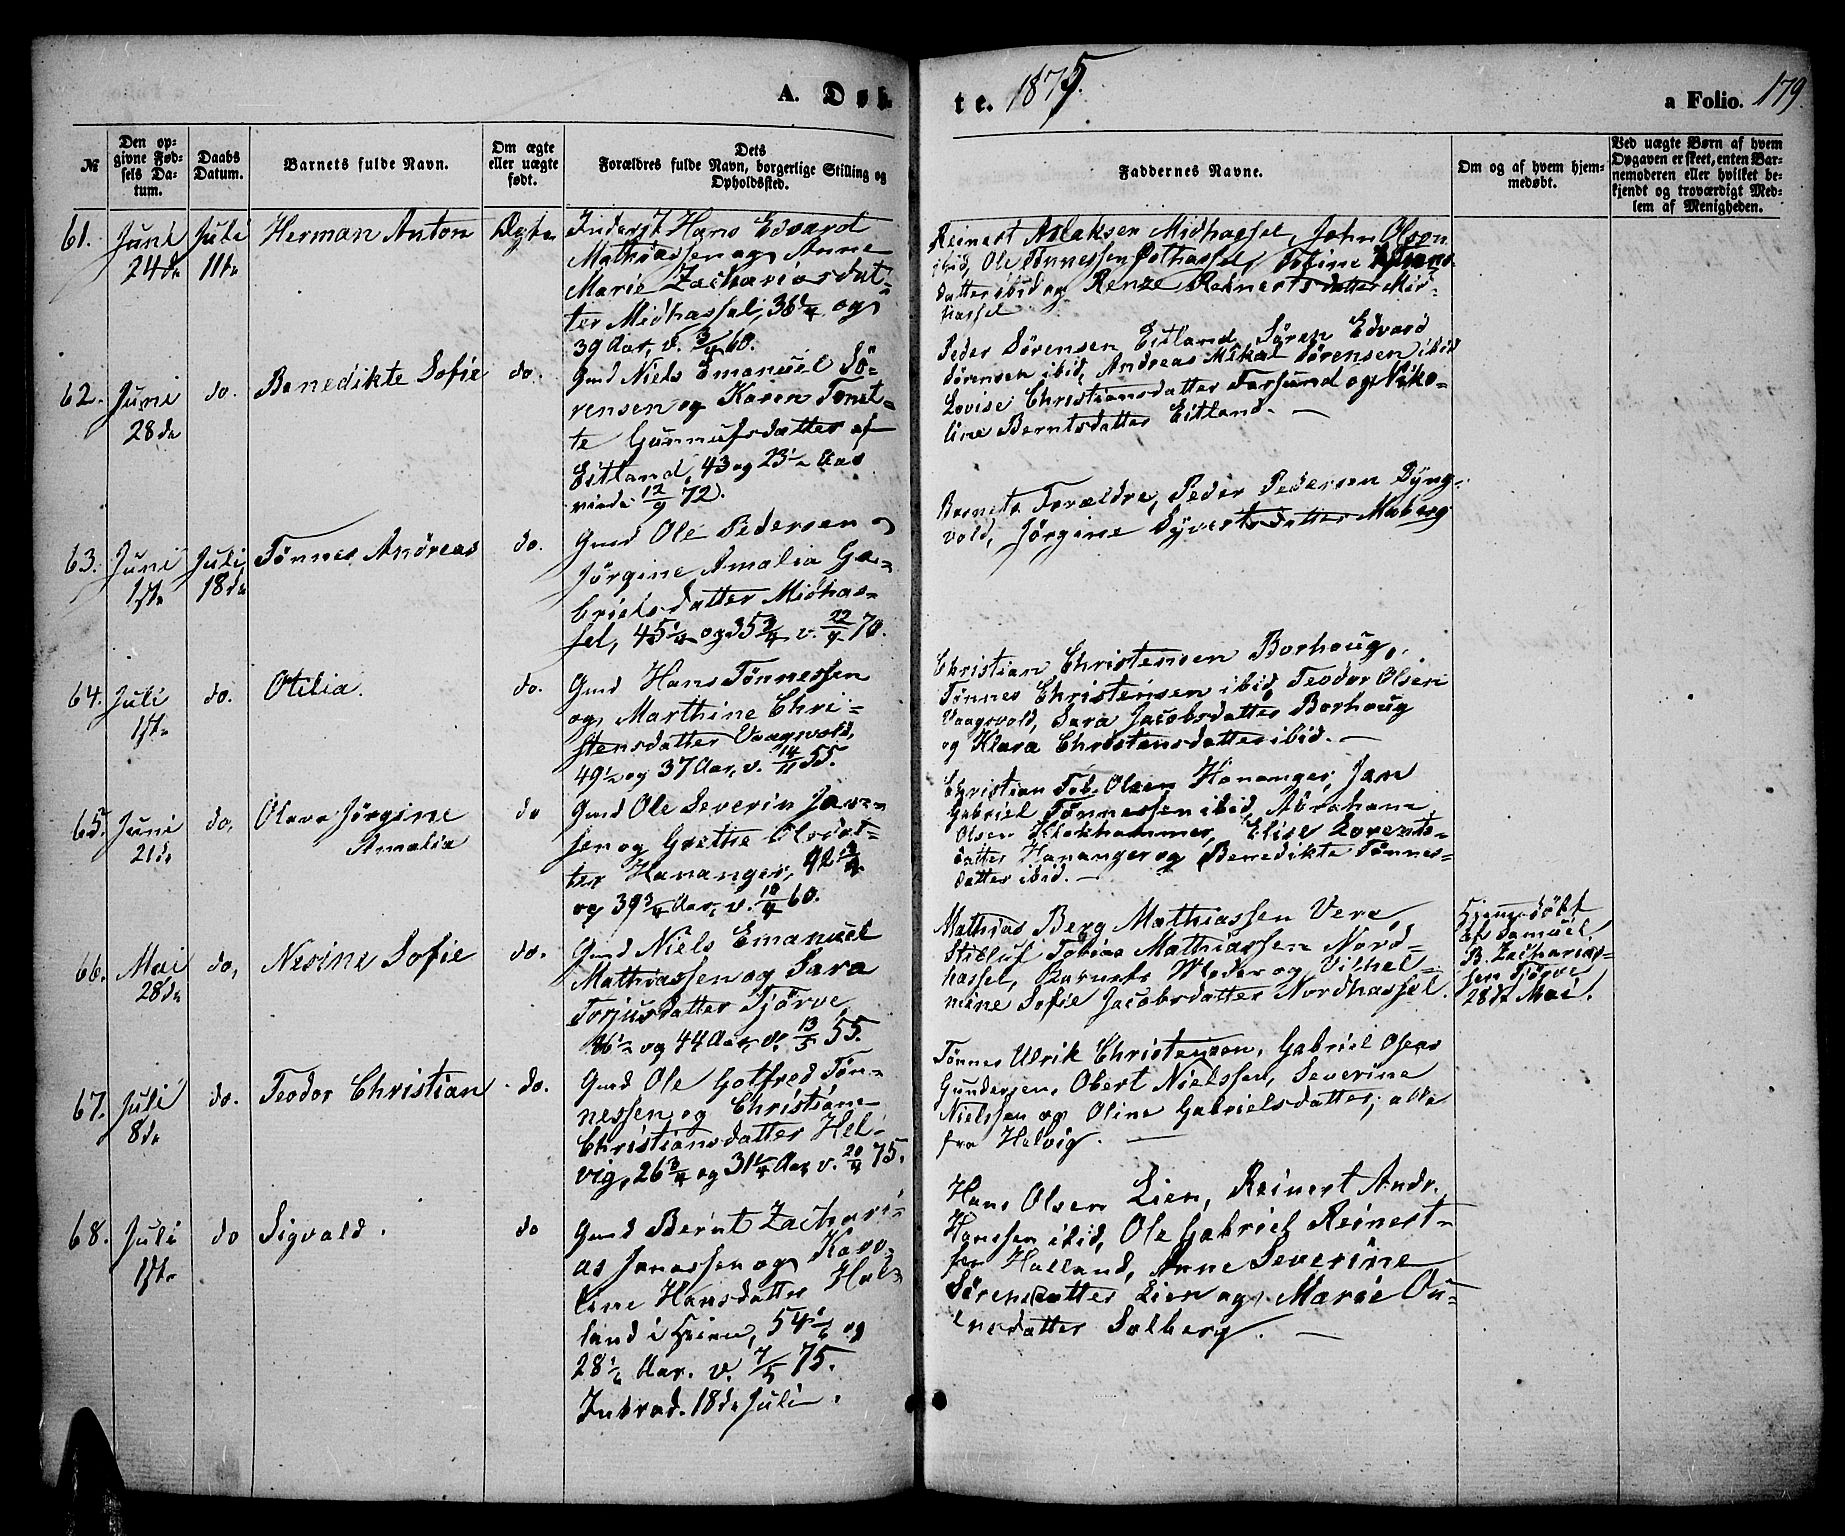 A. Døb
te. 1875.
a Folio. 179.
№
Den op-
givne Fød-
sels Da-
tum.
Daabs
Datum.
Barnets fulde Navn.
Om ægte
eller uægte
født.
Dets
Forældres fulde Navn, borgerlige Stilling og
Opholdssted.
Faddernes Navne.
Om og af hvem hjem-
medøbt.
Ved uægte Børn af hvem
Opgaven er skeet, enten Bar-
nemoderen eller hvilket be-
kjendt og troværdigt Med-
lem af Menigheden.
61. Juni
24de
Juli
11te
Herman Anton
Ægte
Hans Edvard
Mathiassen og Anne
Marie Zachariasdat-
ter Midhassel, 36 og
39 Aar, v. 3/4 60.
Reinert Aslaksen Midhassel, John Olsen
ibid, Ole Tønnessen Østhassel,
datter ibid og Renze Reinertsdatter Mid-
hassel
62. Juni
28de
do.
Benedikte Sofie
do.
Gmd Niels Emanuel Sö-
rensen og Karen Tonet-
te Gunnufsdatter af
Eitland, 43 og 23½ Aar
viede 12/9 72.
Peder Sørensen Eitland, Søren Edvard
Sørensen ibid, Andreas Mikal Sørensen ibid
Lovise Christiansdatter Farsund og Niko-
line Berntsdatter Eitland. —
63. Juni
1ste
Juli
18de
Tønnes Andreas
do.
Gmd Ole Pedersen og
Jørgine Amalia Ga-
brielsdatter Midhas-
sel, 45¼ og 35¾ v. 22/4 70.
Barnets Forældre, Peder Pedersen Dyng-
vold, Jørgine Syvertsdatter Maberg
64. Juli
1ste
do.
Otilia.
do.
Gmd Hans Tønnessen
og Marthine Chri-
stensdatter Vaagsvold,
49½ og 37 Aar, v. 14/11 55.
Christian Christensen Borhoug,
Tønnes Christensen ibid, Teodor Olsen
Vaagsvold, Sara Jacobsdatter Borhoug
og Klara Christensdatter ibid. —
65. Juni
21de
do,
Olava Jørgine
Amalia
do
Gmd Ole Severin Jan-
sen og Grethe Olsdat-
ter Hananger, 42¾
og 39¾ Aar, v. 10/4 60.
Christian Tob. Olsen Hananger, Jan
Gabriel Tønnessen ibid, Abraham
Olsen Klokhammer, Elise Lorents-
datter Hananger og Benedikte Tønnes-
datter ibid. —
66. Mai
28de
do,
Nesine Sofie
do.
Gmd Niels Emanuel
Mathiassen og Sara
Torjusdatter Tjörve,
46½ og 44 Aar, v. 13/5 55.
Mathias Berg Mathiassen Vere,
Tobias Mathiassen Nord-
hassel, Barnets Moder og Vilhel-
mine Sofie Jacobsdatter Nordhassel.
Hjemmedöbt
af Samuel
B. Zacharias-
sen Tjörve
28de Mai.
67. Juli
8de
do.
Teodor Christian
do.
Gmd Ole Gotfred Tøn-
nessen og Christiane
Christiansdatter Hel-
vig, 26¾ og 31¼ Aar v. 20/4 75.
Tønnes Ulrik Christensen, Gabriel Oseas
Gundersen, Obert Nielssen, Severine
Nielssen og Oline Gabrielsdatter, alle
fra Helvig. —
68. Juli
1ste
do
Sigvald.
do
Gmd Bernt Zachari-
as Janassen og Karo-
line Hansdatter Hal-
land i Heren, 54 og
28½ Aar. v. 7/5 75.
18de Juli.
Hans Olsen Lien, Reinert Andr.
Hanssen ibid, Ole Gabriel Reinert-
sen Halland, Anne Severine
Sørensdatter Lien og Marie Ou-
ensdatter Salberg. —